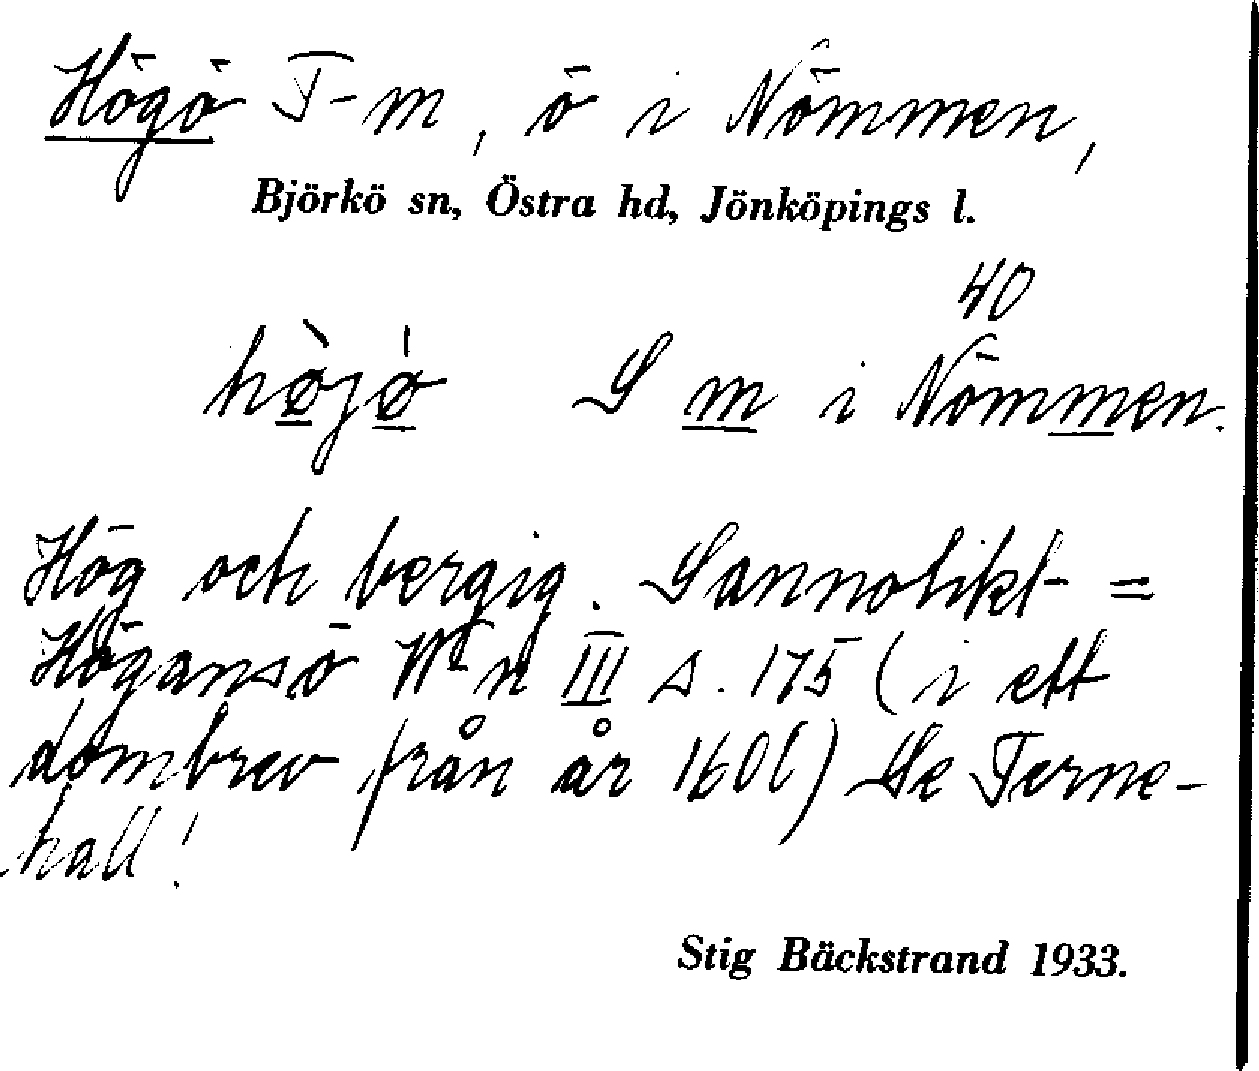 Högö T-m, ö i Nömmen,
Björkö sn, Östra hd, Jönköpings l.
40
hø̀jø̍ S m i Nömmen.
Hög och bergig. Sannolikt =
Högansö W-n III s. 175 (i ett
dombrev från år 1601) Se Terne-
hall!
Stig Bäckstrand 1933.